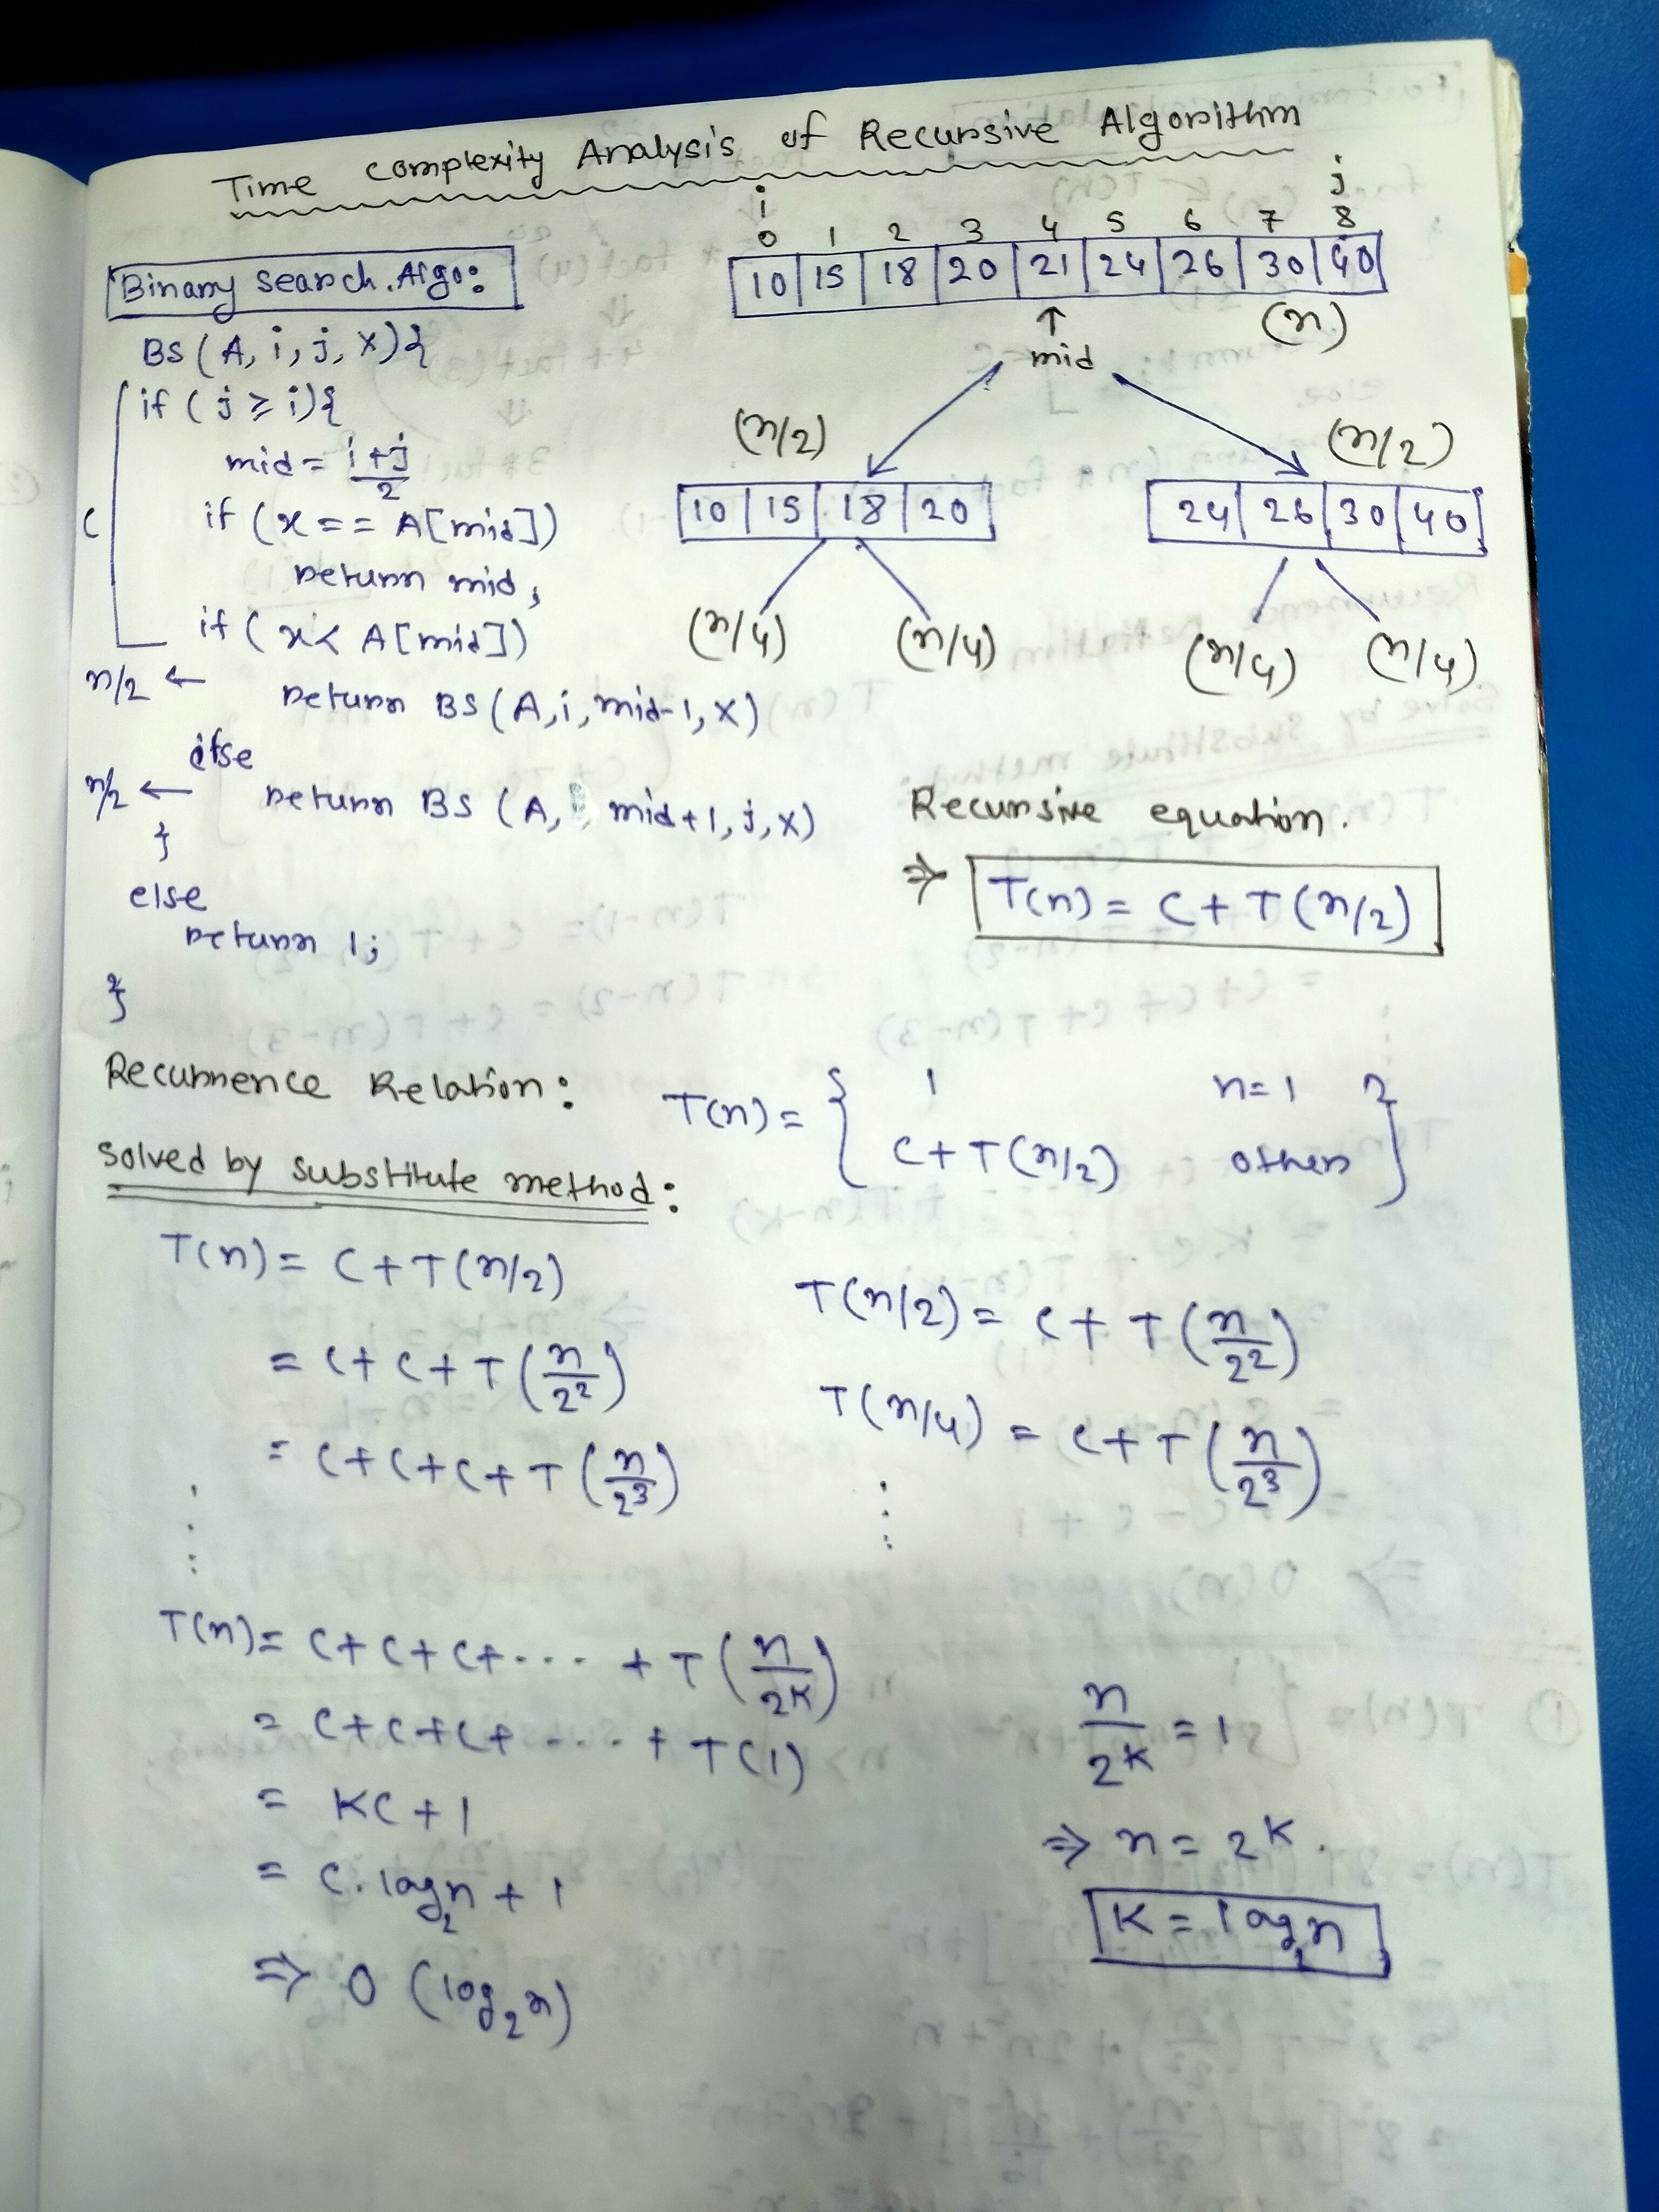 Time Complexity Analysis of Recursive Algorithm
i j
0 1 2 3 4 5 6 7 8
Binary Search Algo:
10 15 18 20 21 24 26 30 40
↑
mid
(n)
BS(A, i, j, x){
if (j ≥ i){
mid = i+j/2
C
if (x == A[mid])
return mid,
if (x < A[mid])
n/2 ←
return BS(A, i, mid-1, x)
else
n/2 ←
return BS(A, mid+1, j, x)
}
else
return 1;
}
(n/2) (n/2)
10 15 18 20
24 26 30 40
(n/4) (n/4) (n/4) (n/4)
Recursive equation.
⇒ T(n) = C + T(n/2)
Recurrence Relation:
T(n) = { 1 n=1
C + T(n/2) others }
Solved by substitute method:
T(n) = C + T(n/2)
= C + C + T(n/2²)
= C + C + C + T(n/2³)
⋮
T(n/2) = C + T(n/2²)
T(n/4) = C + T(n/2³)
⋮
T(n) = C + C + C + ... + T(n/2^K)
= C + C + C + .... + T(1)
= KC + 1
= C. log₂n + 1
⇒ O (log₂n)
n/2^K = 1
⇒ n = 2^K.
K = log₂n